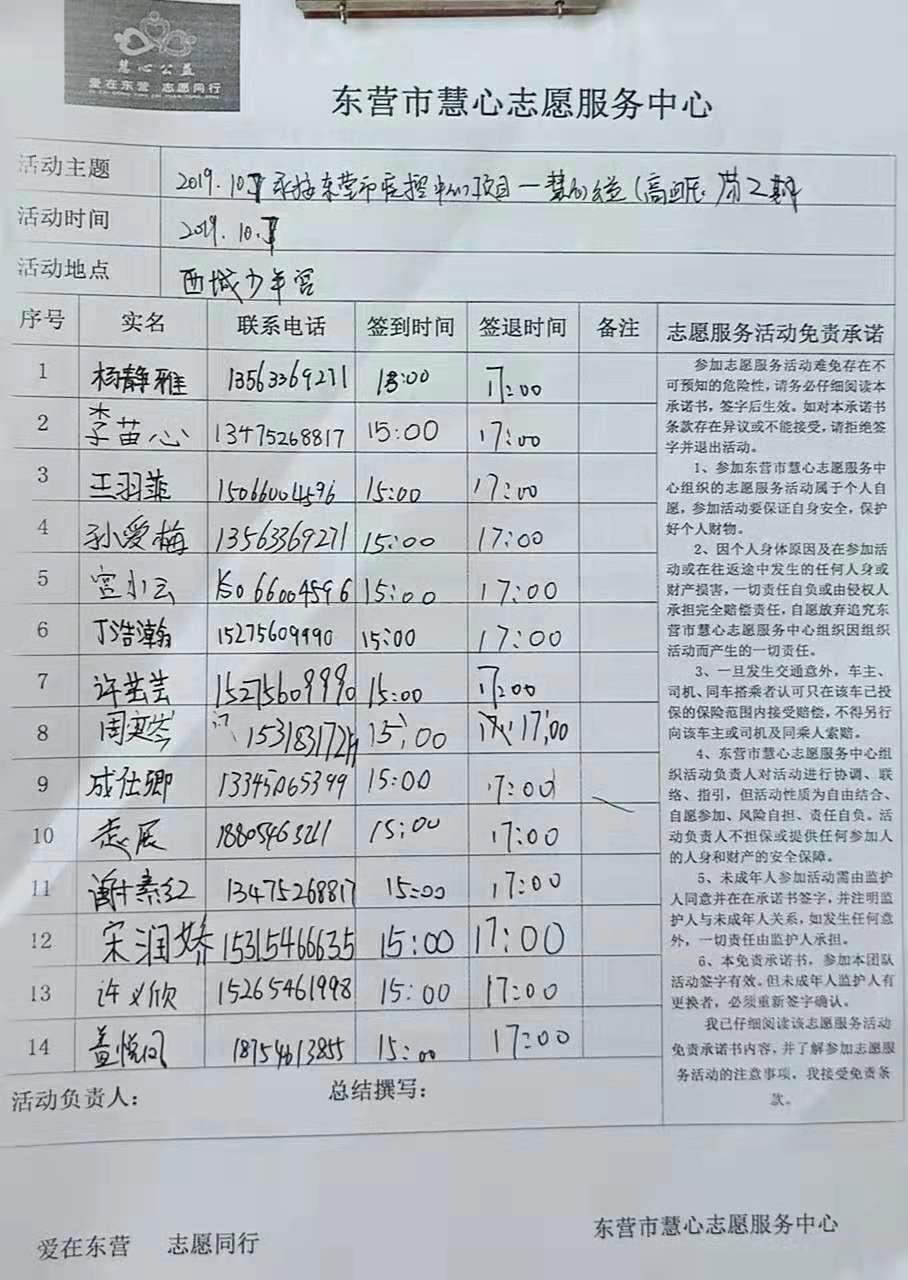 慧心公益
爱在东营 志愿同行
东营市慧心志愿服务中心
活动主题 2019.10. 承接东营市疾控中心项目一慧心公益(高血压 第2期
活动时间 2019.10.
活动地点 西城少年宫
序号 实名 联系电话 签到时间 签退时间 备注 志愿服务活动免责承诺
1 杨静雅 13563369271 15:00 17:00
2 李苗心 13475268817 15:00 17:00
3 王羽菲 15066004596 15:00 17:00
4 孙爱梅 13563369271 15:00 17:00
5 宫小云 15066004596 15:00 17:00
6 丁浩瀚 15275609990 15:00 17:00
7 许芸芸 15275609990 15:00 17:00
8 周奕岑 15:00 17:00
9 成仕卿 13345065399 15:00 17:00
10 展 15:00 17:00
11 谢素红 13475268817 15:00 17:00
12 宋润娇 15315466635 15:00 17:00
13 许义欣 15265461998 15:00 17:00
14 盖悦 18754613855 15:00 17:00
参加志愿服务活动难免存在不
可预知的危险性,请务必仔细阅读本
承诺书,签字后生效。如对本承诺书
条款存在异议或不能接受,请拒绝签
字并退出活动。
1、参加东营市慧心志愿服务中
心组织的志愿服务活动属于个人自
愿,参加活动要保证自身安全,保护
好个人财物。
2、因个人身体原因及在参加活
动或在往返途中发生的任何人身或
财产损害,一切责任自负或由侵权人
承担完全赔偿责任,自愿放弃追究东
营市慧心志愿服务中心组织因组织
活动而产生的一切责任。
3、一旦发生交通意外,车主、
司机、同车搭乘者认可只在该车已投
保的保险范围内接受赔偿,不得另行
向该车主或司机及同乘人索赔。
4、东营市慧心志愿服务中心组
织活动负责人对活动进行协调、联
络、指引,但活动性质为自由结合、
自愿参加、风险自担、责任自负。活
动负责人不担保或提供任何参加人
的人身和财产的安全保障。
5、未成年人参加活动需由监护
人同意并在在承诺书签字,并注明监
护人与未成年人关系,如发生任何意
外,一切责任由监护人承担。
6、本免责承诺书,参加本团队
活动签字有效。但未成年人监护人有
更换者,必须重新签字确认。
我已仔细阅读该志愿服务活动
免责承诺书内容,并了解参加志愿服
务活动的注意事项,我接受免责条
款。
活动负责人: 总结撰写:
爱在东营 志愿同行
东营市慧心志愿服务中心